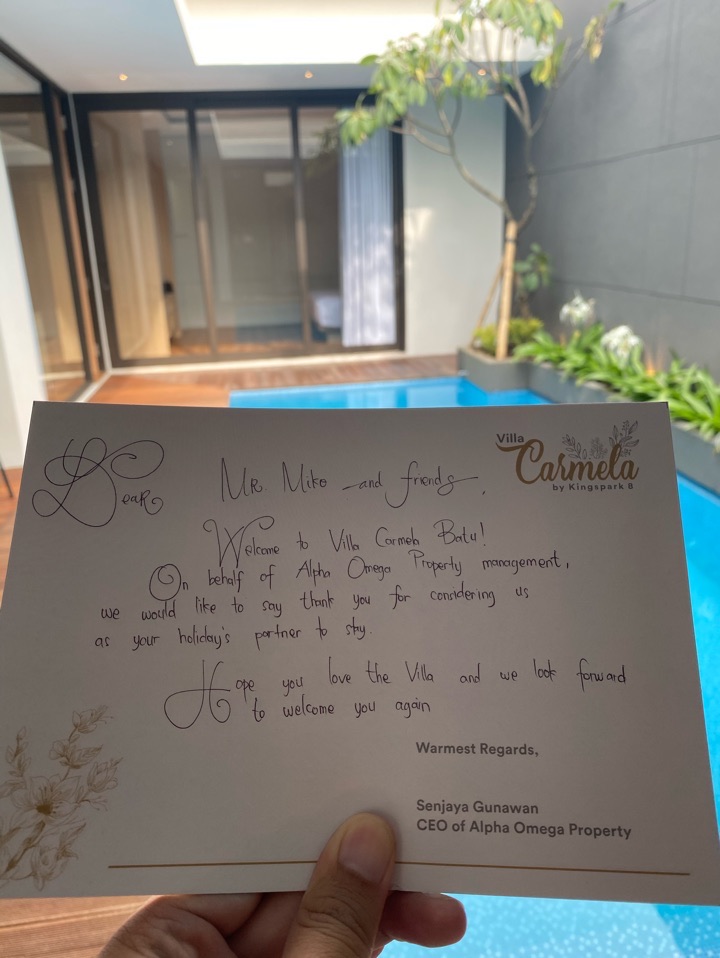 Villa
Carmela
by Kingspark 8
Dear Mr Miko and friends,
Welcome to Villa Carmela Batu!
On behalf of Alpha Omega Property management,
we would like to say thank you for considering us
as your holiday's partner to stay.
Hope you love the Villa and we look forward
to welcome you again
Warmest Regards,
Senjaya Gunawan
CEO of Alpha Omega Property